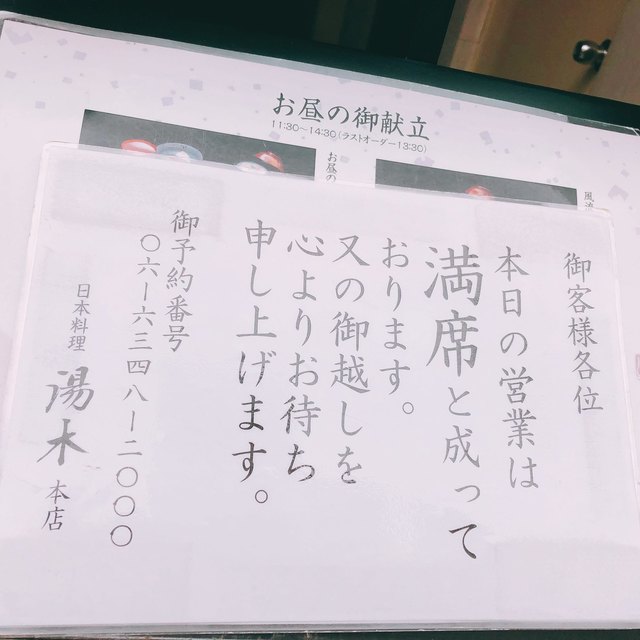 お昼の御献立
11:30〜14:30(ラストオーダー13:30)
お昼の
風流
御客様各位
本日の営業は
満席と成って
おります。
又の御越しを
心よりお待ち
申し上げます。
御予約番号
〇六ー六三四八ー二〇〇〇
日本料理 湯木 本店